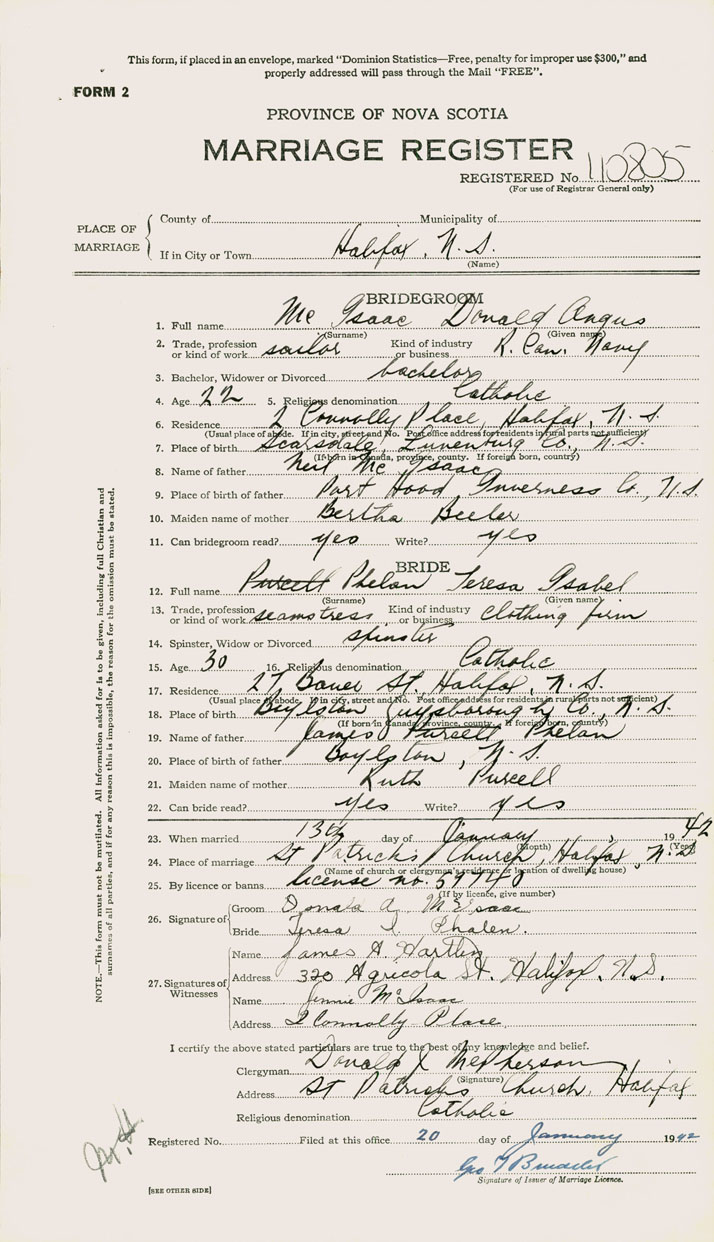 This form, if placed in an envelope, marked "Dominion Statistics—Free, penalty for improper use $300," and
properly addressed will pass through the Mail "FREE".
FORM 2
PROVINCE OF NOVA SCOTIA
MARRIAGE REGISTER
REGISTERED No. 110805
(For use of Registrar General only)
PLACE OF MARRIAGE
County of Municipality of
If in City or Town Halifax, N.S.
(Name)
BRIDEGROOM
1. Full name Mc Isaac Donald Angus
(Surname) (Given name)
2. Trade, profession or kind of work sailor Kind of industry or business R. Can. Navy
3. Bachelor, Widower or Divorced bachelor
4. Age 22 5. Religious denomination Catholic
6. Residence 2 Connolly Place, Halifax, N.S.
(Usual place of abode. If in city, street and No. Post office address for residents in rural parts not sufficient)
7. Place of birth Scarsdale, Lunenburg Co., N.S.
(If born in Canada, province, county. If foreign born, country)
8. Name of father Neil Mc Isaac
9. Place of birth of father Port Hood Inverness Co., N.S.
10. Maiden name of mother Bertha Beeler
11. Can bridegroom read? yes Write? yes
BRIDE
12. Full name Purcell Phelan Teresa Isabel
(Surname) (Given name)
13. Trade, profession or kind of work seamstress Kind of industry or business clothing firm
14. Spinster, Widow or Divorced spinster
15. Age 30 16. Religious denomination Catholic
17. Residence 27 Bauer St. Halifax, N.S.
(Usual place of abode. If in city, street and No. Post office address for residents in rural parts not sufficient)
18. Place of birth Boylston Guysborough Co., N.S.
(If born in Canada, province, county. If foreign born, country)
19. Name of father James Purcell Phelan
20. Place of birth of father Boylston, N.S.
21. Maiden name of mother Ruth Purcell
22. Can bride read? yes Write? yes
23. When married 13th day of January, 1942
(Month) (Year)
24. Place of marriage St Patrick's Church, Halifax, N.S
(Name of church or clergyman's residence or location of dwelling house)
25. By licence or banns license no.
(If by licence, give number)
26. Signature of
Groom Donald A. McIsaac
Bride Teresa I. Phalen.
27. Signatures of Witnesses
Name James A. Hartlin
Address 320 Agricola St. Halifax, N.S.
Name Jennie McIsaac
Address 2 Connolly Place
I certify the above stated particulars are true to the best of my knowledge and belief.
Clergyman Donald McPherson
(Signature)
Address St Patricks Church, Halifax
Religious denomination Catholic
Registered No. Filed at this office 20 day of January 1942
Signature of Issuer of Marriage Licence.
[SEE OTHER SIDE]
NOTE.—This form must not be mutilated. All information asked for is to be given, including full Christian and
surnames of all parties, and if for any reason this is impossible, the reason for the omission must be stated.